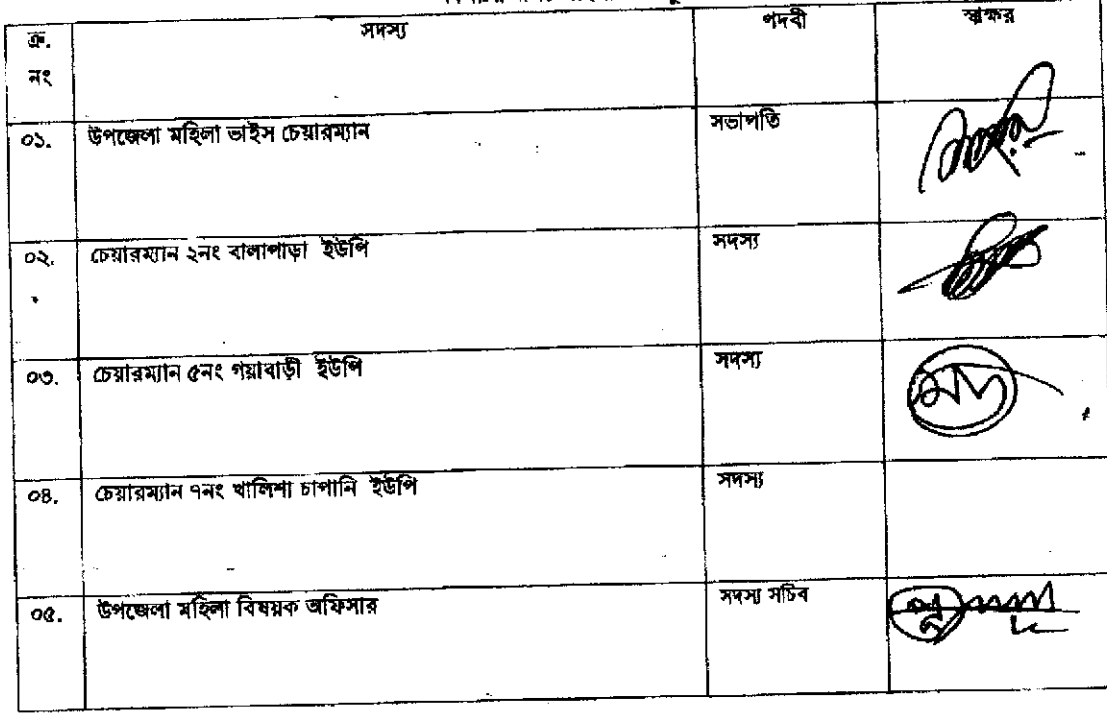 ক্র. নং সদস্য পদবী স্বাক্ষর
০১. উপজেলা মহিলা ভাইস চেয়ারম্যান সভাপতি
০২. চেয়ারম্যান ২নং বালাপাড়া ইউপি সদস্য
০৩. চেয়ারম্যান ৫নং গয়াবাড়ী ইউপি সদস্য
০৪. চেয়ারম্যান ৭নং খালিশা চাপানি ইউপি সদস্য
০৫. উপজেলা মহিলা বিষয়ক অফিসার সদস্য সচিব